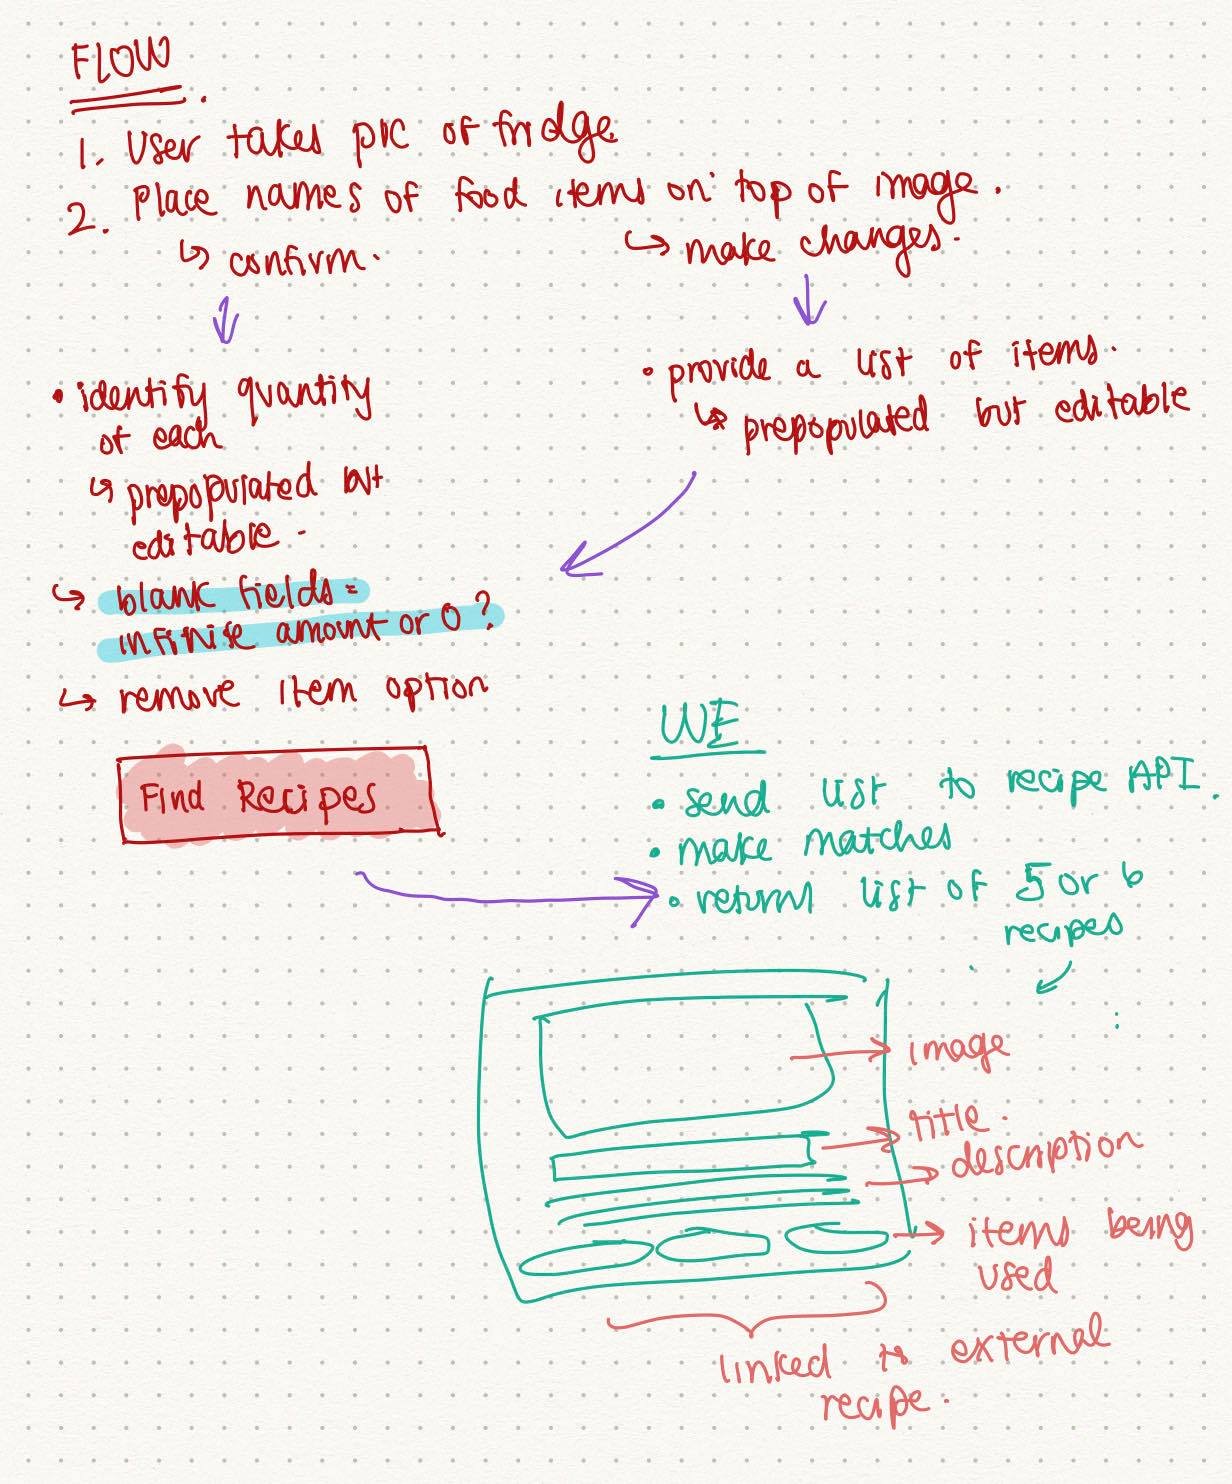 FLOW
1. User takes pic of fridge
2. Place names of food items on top of image.
↳ confirm.
↳ make changes.
• identify quantity
of each
↳ prepopulated but
editable.
↳ blank fields =
infinite amount or 0?
↳ remove item option
• provide a list of items.
↳ prepopulated but editable
Find Recipes
WE
• send list to recipe API.
• make matches
• return list of 5 or 6
recipes
image
title.
description
items being
used
linked to external
recipe.